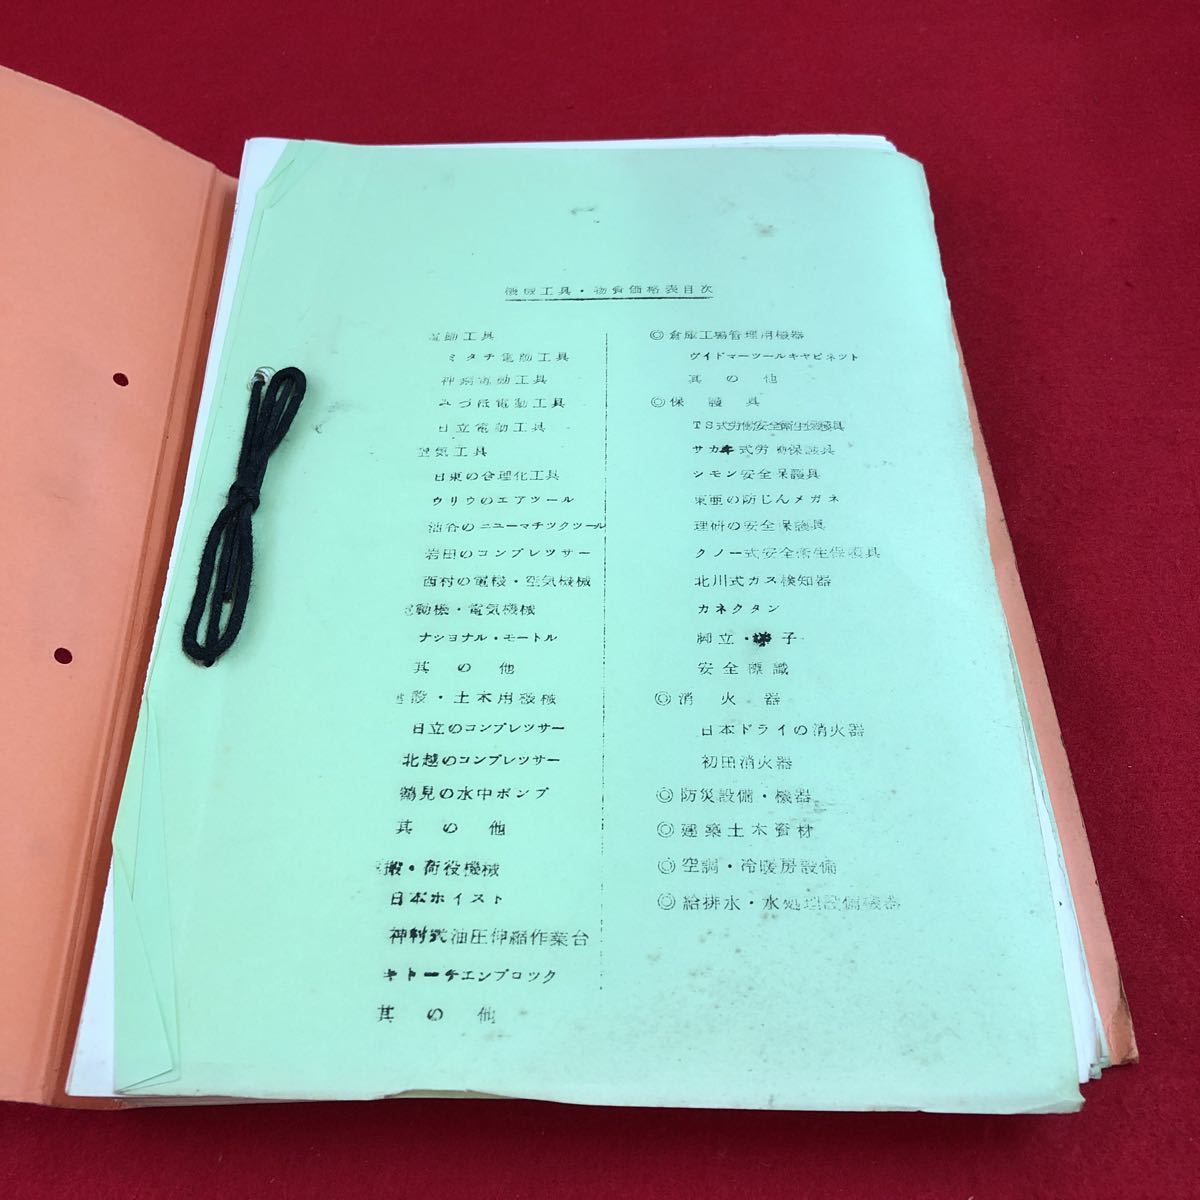 機械工具・物資価格表目次
電動工具
ミタチ電動工具
神鋼電動工具
電動工具
日立電動工具
空気工具
日東の合理化工具
ウリウのエアツール
油谷のニューマチックツール
岩田のコンプレッサー
西村の電機・空気機械
動機・電気機械
ナショナル・モートル
其の他
設・土木用機械
日立のコンプレッサー
北越のコンプレッサー
鶴見の水中ポンプ
其の他
搬・荷役機械
日本ホイスト
神村式油圧伸縮作業台
キトーチエンブロック
其の他
◎倉庫工場管理用機器
ヴイドマーツールキャビネット
其の他
◎保護具
TS式労働安全衛生保護具
サカキ式労働保護具
シモン安全保護具
東亜の防じんメガネ
理研の安全保護具
クノー式安全衛生保護具
北川式ガス検知器
カネクタン
脚立・梯子
安全標識
◎消火器
日本ドライの消火器
初田消火器
◎防災設備・機器
◎建築土木資材
◎空調・冷暖房設備
◎給排水・水処理設備機器